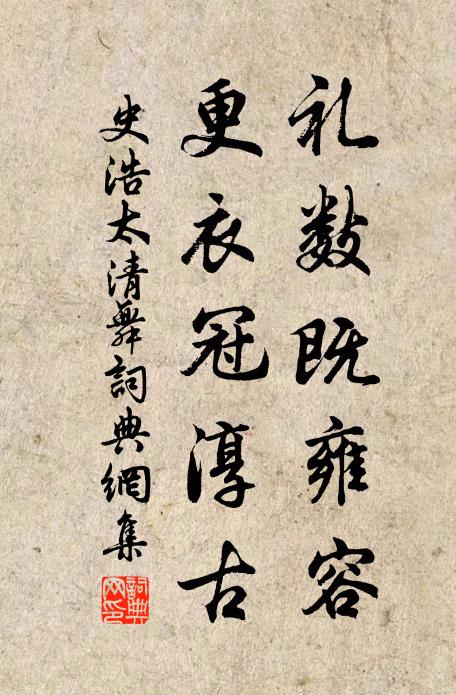 礼数既雍容
更衣冠淳古
史浩太清舞詞典網集
詞典网印